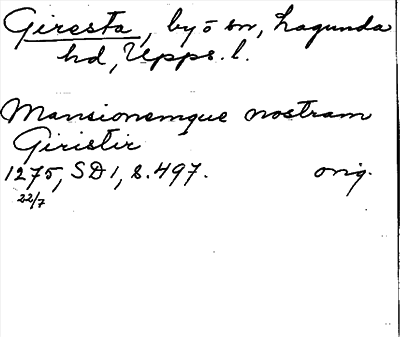 Giresta, by o sn, Lagunda
hd, Upps. l.
Mansionemque nostram
Giristir
1275, SD 1, s. 497. orig.
22/7